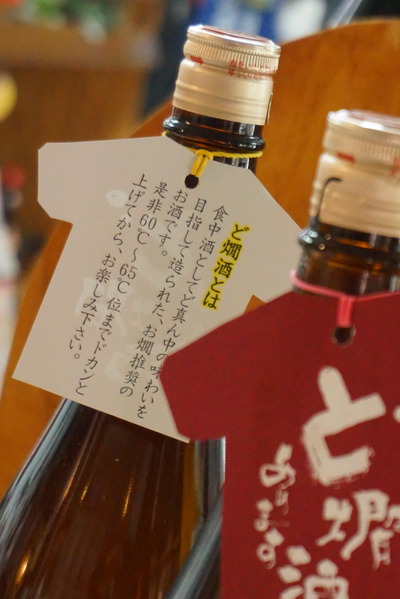 ど燗酒とは
食中酒としてど真ん中の味わいを
目指して造られた、お燗推奨の
お酒です。
是非60℃～65℃位までドカンと
上げてから、お楽しみ下さい。
ど燗酒
あります